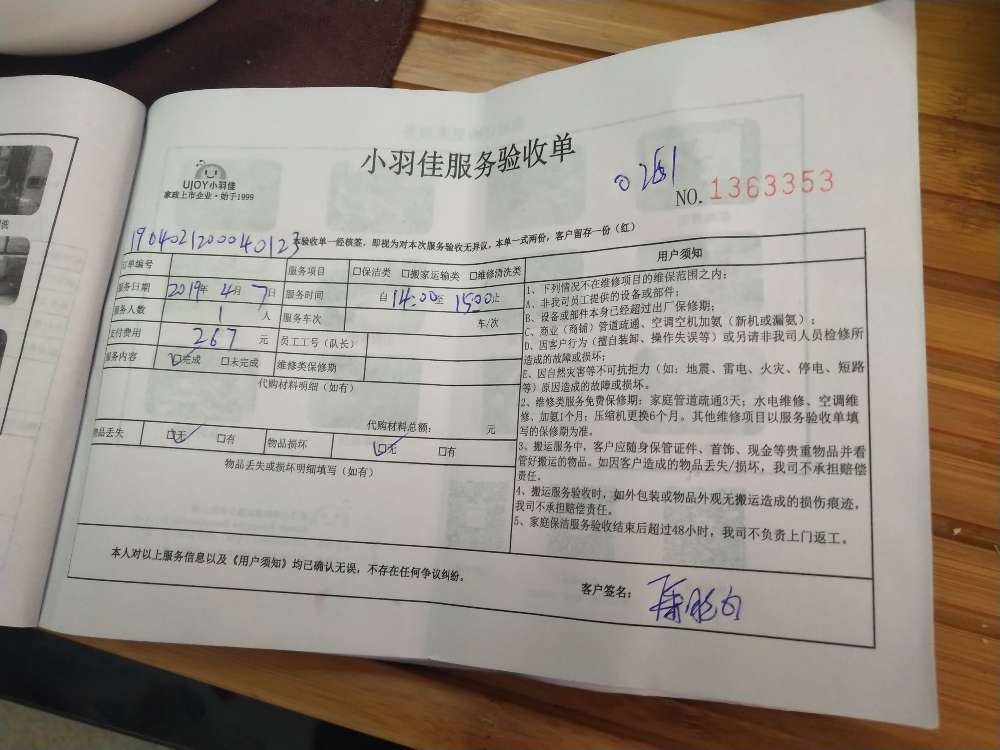 小羽佳服务验收单
UJOY小羽佳
家政上市企业·始于1999
NO.1363353
本验收单一经核签，即视为对本次服务验收无异议，本单一式两份，客户留存一份（红）
订单编号 1904021200040123
服务项目 □保洁类 □搬家运输类 □维修清洗类
服务日期 2019年 4月 7日 服务时间 自14:00至15:00止
服务人数 1 人 服务车次 车/次
支付费用 267 元 员工工号（队长）
服务内容 □完成 □未完成 维修类保修期
代购材料明细（如有）
代购材料总额： 元
物品丢失 □无 □有 物品损坏 □无 □有
物品丢失或损坏明细填写（如有）
用户须知
1、下列情况不在维修项目的维保范围之内：
A、非我司员工提供的设备或部件；
B、设备或部件本身已经超过出厂保修期；
C、商业（商铺）管道疏通、空调空机加氨（新机或漏氨）；
D、因客户行为（擅自装卸、操作失误等）或另请非我司人员检修所
造成的故障或损坏；
E、因自然灾害等不可抗拒力（如：地震、雷电、火灾、停电、短路
等）原因造成的故障或损坏。
2、维修类服务免费保修期：家庭管道疏通3天；水电维修、空调维
修、加氨1个月；压缩机更换6个月。其他维修项目以服务验收单填
写的保修期为准。
3、搬运服务中，客户应随身保管证件、首饰、现金等贵重物品并看
管好搬运的物品。如因客户造成的物品丢失/损坏，我司不承担赔偿
责任。
4、搬运服务验收时，如外包装或物品外观无搬运造成的损伤痕迹，
我司不承担赔偿责任。
5、家庭保洁服务验收结束后超过48小时，我司不负责上门返工。
本人对以上服务信息以及《用户须知》均已确认无误，不存在任何争议纠纷。
客户签名：